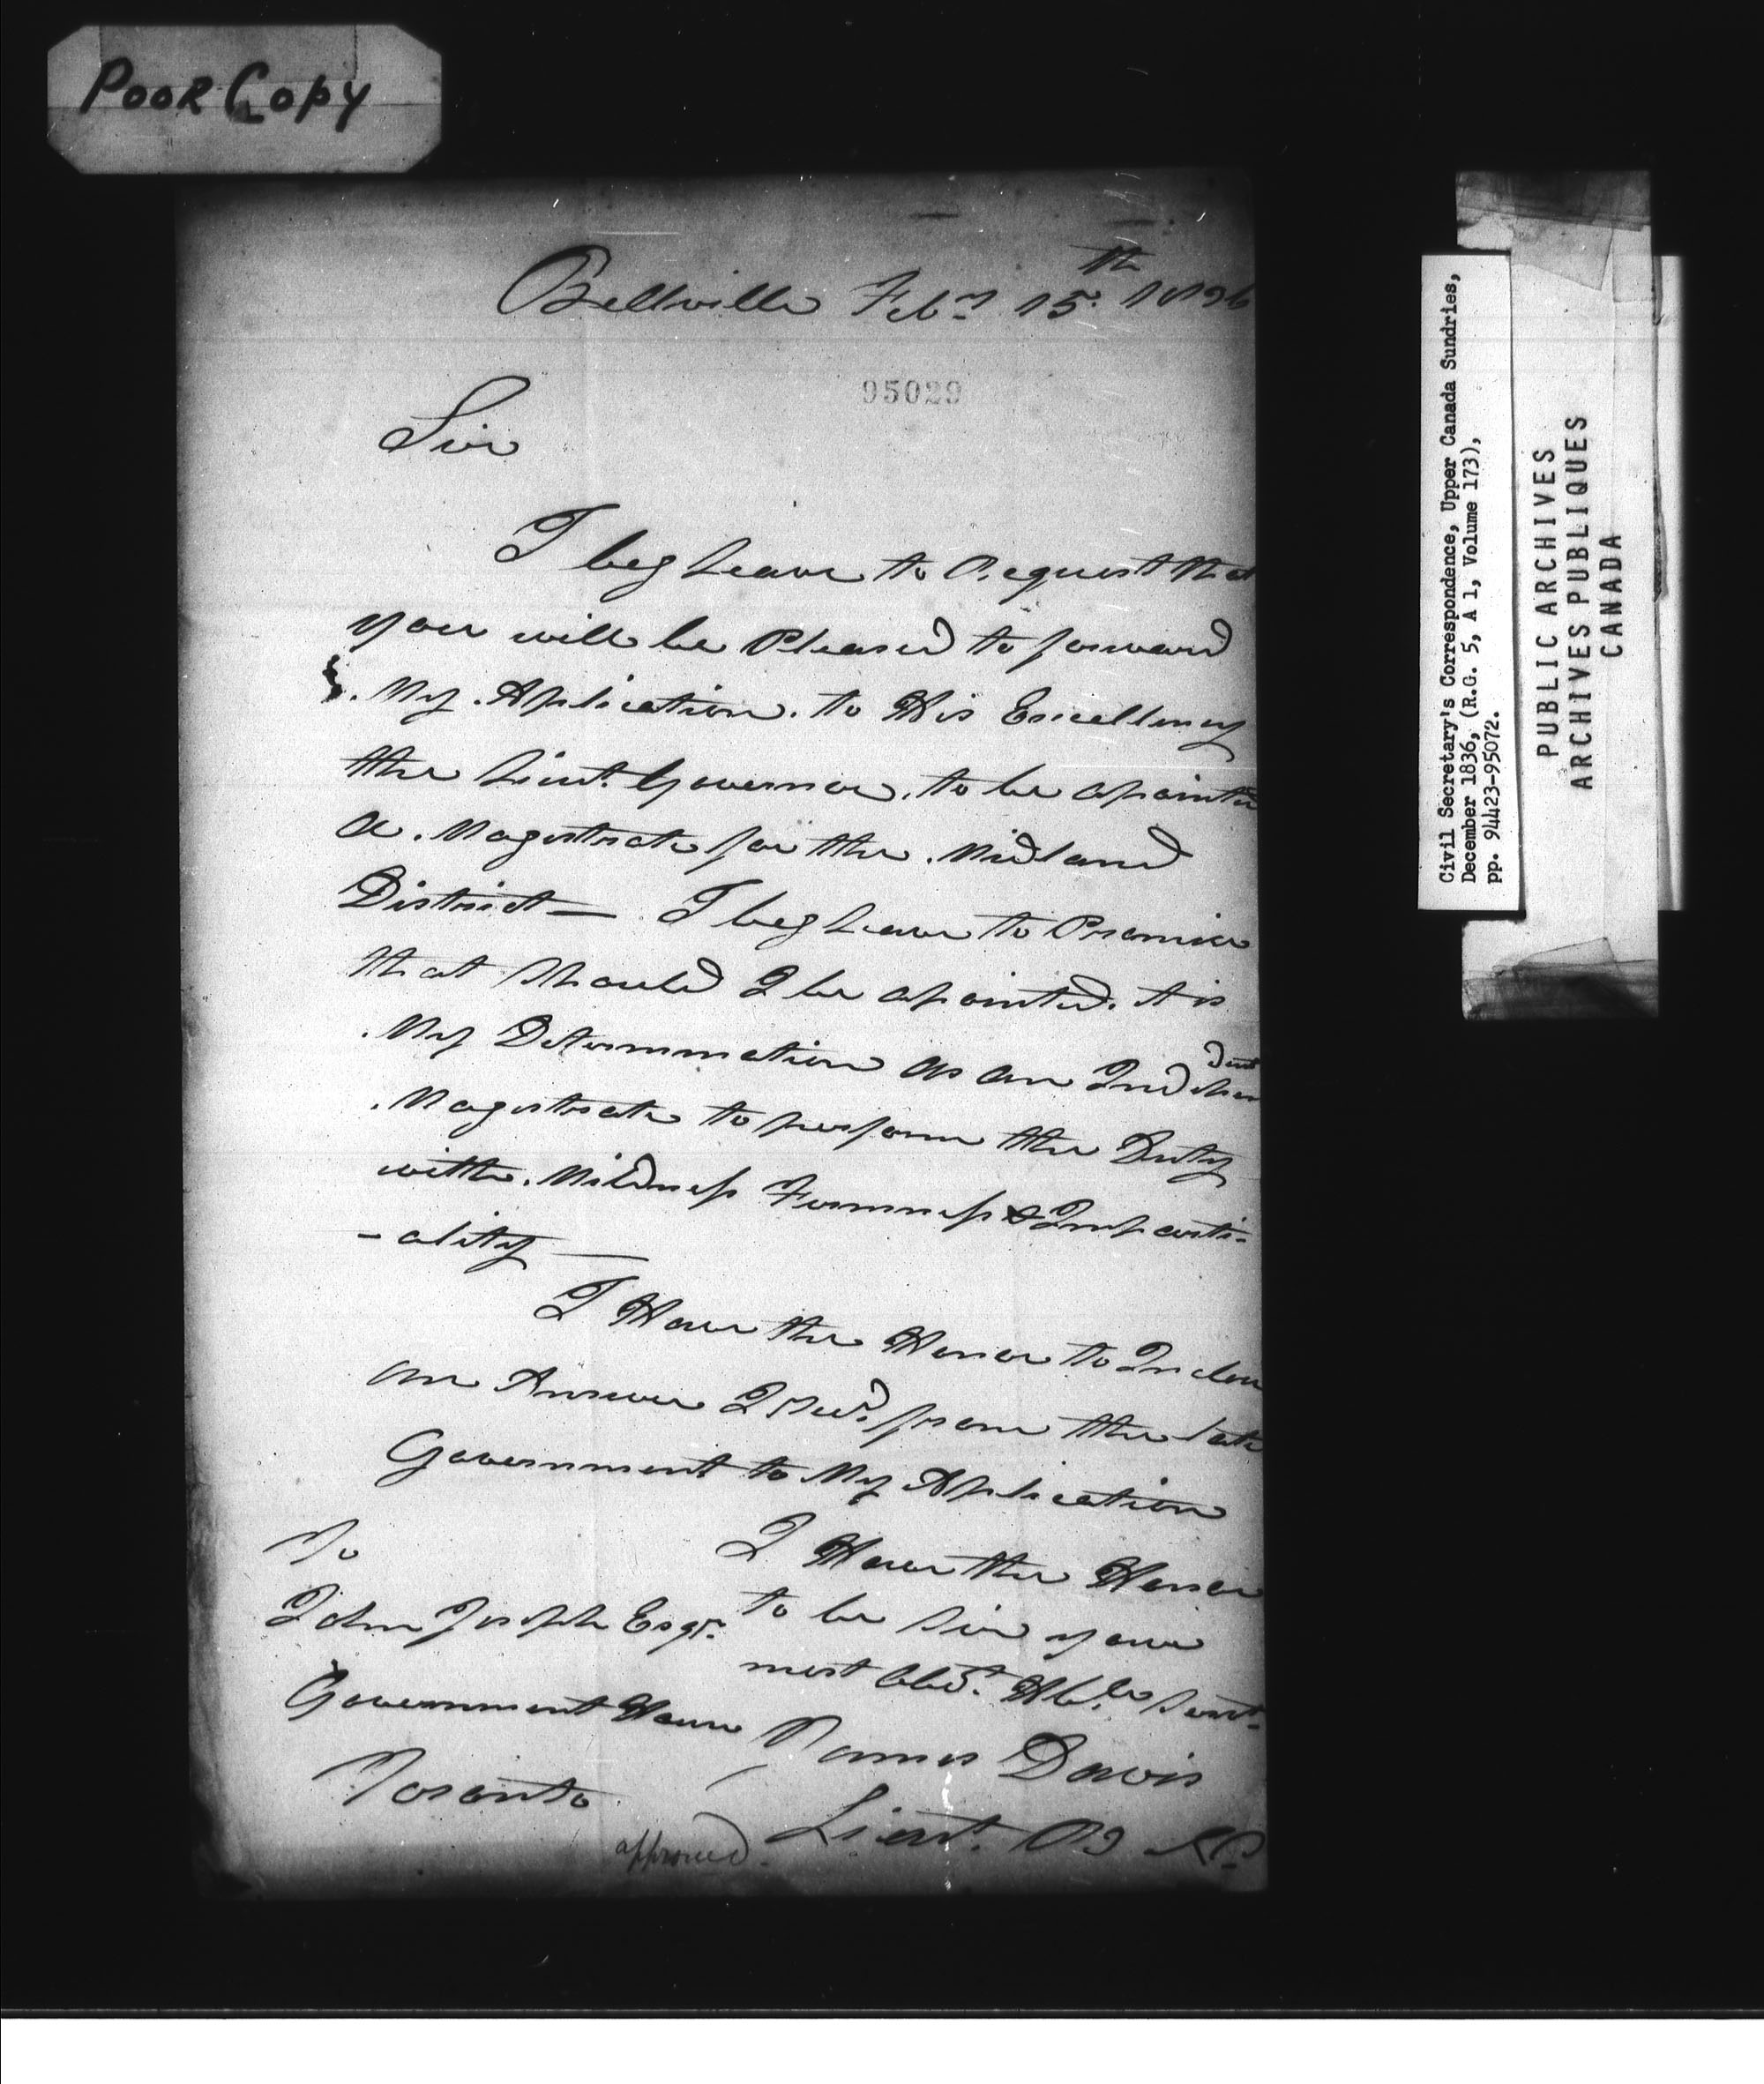 Poor Copy
Bellville Feby 15th 1836
95029
Sir
I beg Leave to Request that
you will be Pleased to forward
My Aplication to His Excellency
the Lieut. Governor, to be apointed
a Magistrate for the Midland
District — I beg Leave to Premise
that Should I be apointed. it is
My Determination as an Indipendent
Magistrate to perform the Duty
with Mildness Firmness & Imparti-
-ality —
I Have the Honor to Inclose
an Answer I Recd. from the late
Government to My Aplication
I Have the Honor
to be Sir your
most Obdt. Hble Servt.
James Davis
Lieut.
To
John Joseph Esqr.
Government House
Toronto
approved.
Civil Secretary's Correspondence, Upper Canada Sundries,
December 1836, (R.G. 5, A 1, Volume 173),
pp. 94423-95072.
PUBLIC ARCHIVES
ARCHIVES PUBLIQUES
CANADA